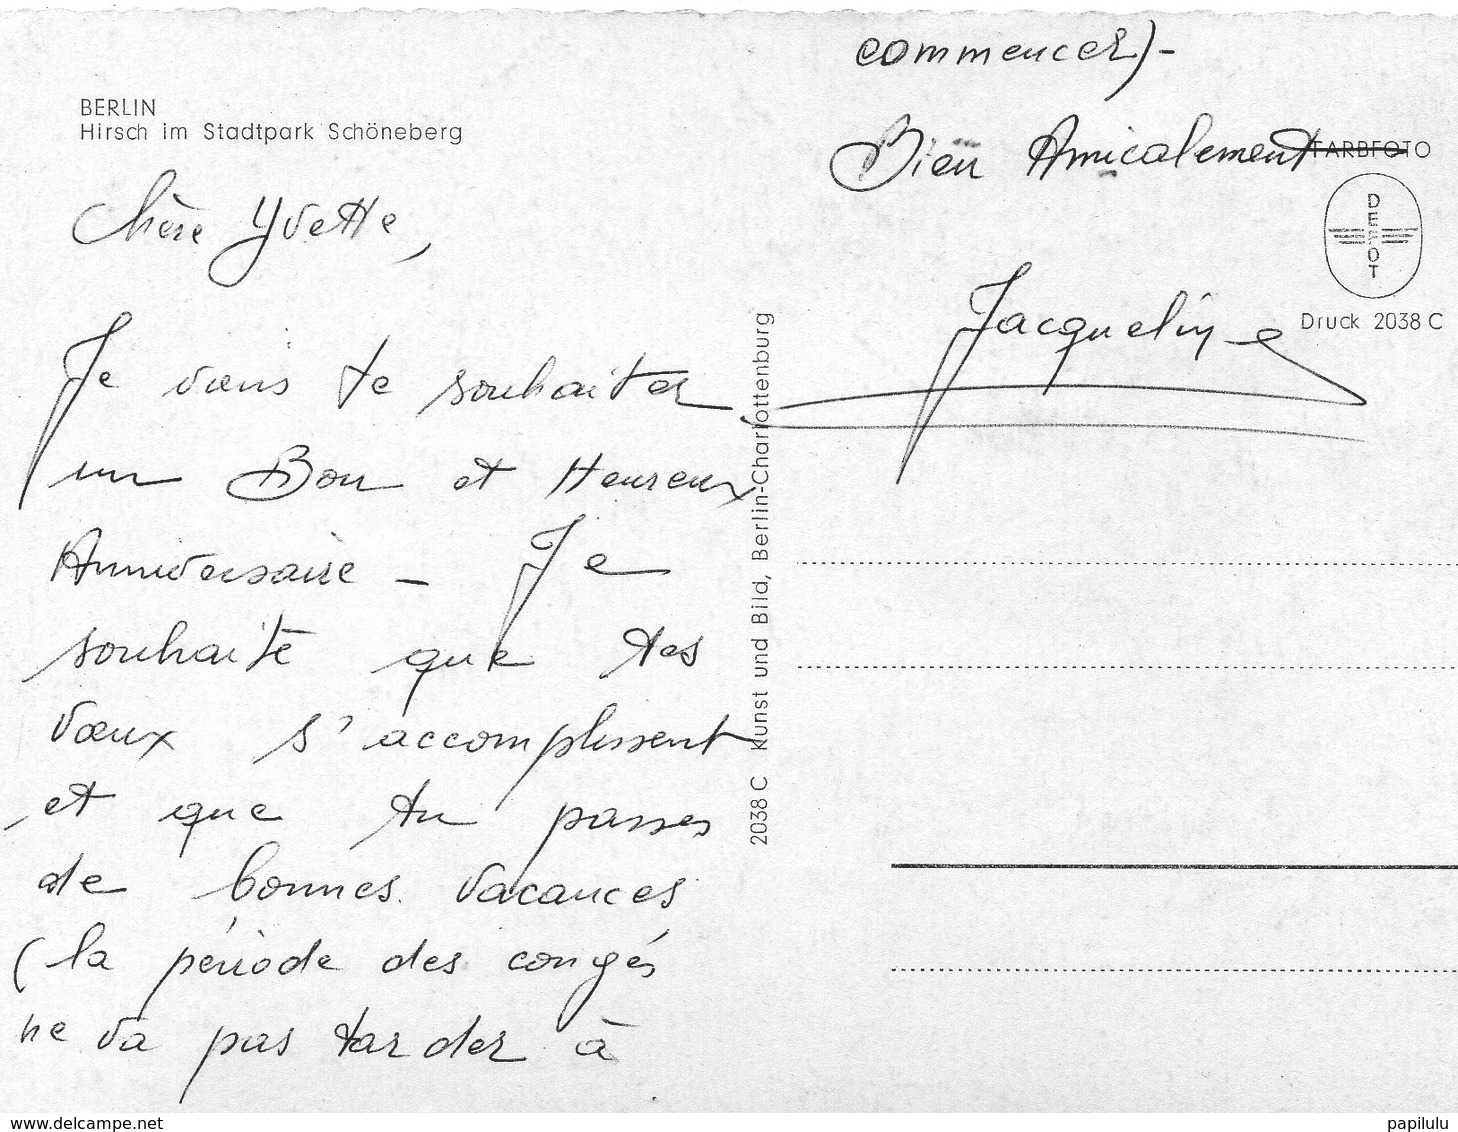 BERLIN
Hirsch im Stadtpark Schöneberg
Chère Yvette,
Je viens te souhaiter
un Bon et Heureux
Anniversaire – Je
souhaite que tes
vœux s'accomplissent
et que tu passes
de bonnes vacances
(la période des congés
ne va pas tarder à
commencer)-
Bien Amicalement
Jacqueline
FARBFOTO
DEFOT
Druck 2038 C
2038 C Kunst und Bild, Berlin-Charlottenburg
www.delcampe.net
papilulu